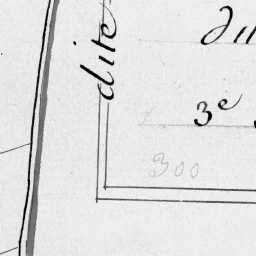 dite
3e
300